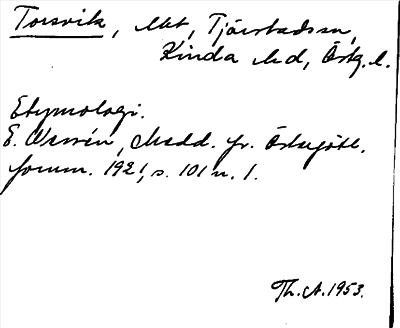 Torsvik, Mkt, Tjärstads sn,
Kinda hd, Östg. l.
Etymologi.
E. Wessén, Medd. fr. Östergötl.
fornm. 1921, s. 101 n. 1.
Th. A. 1953.